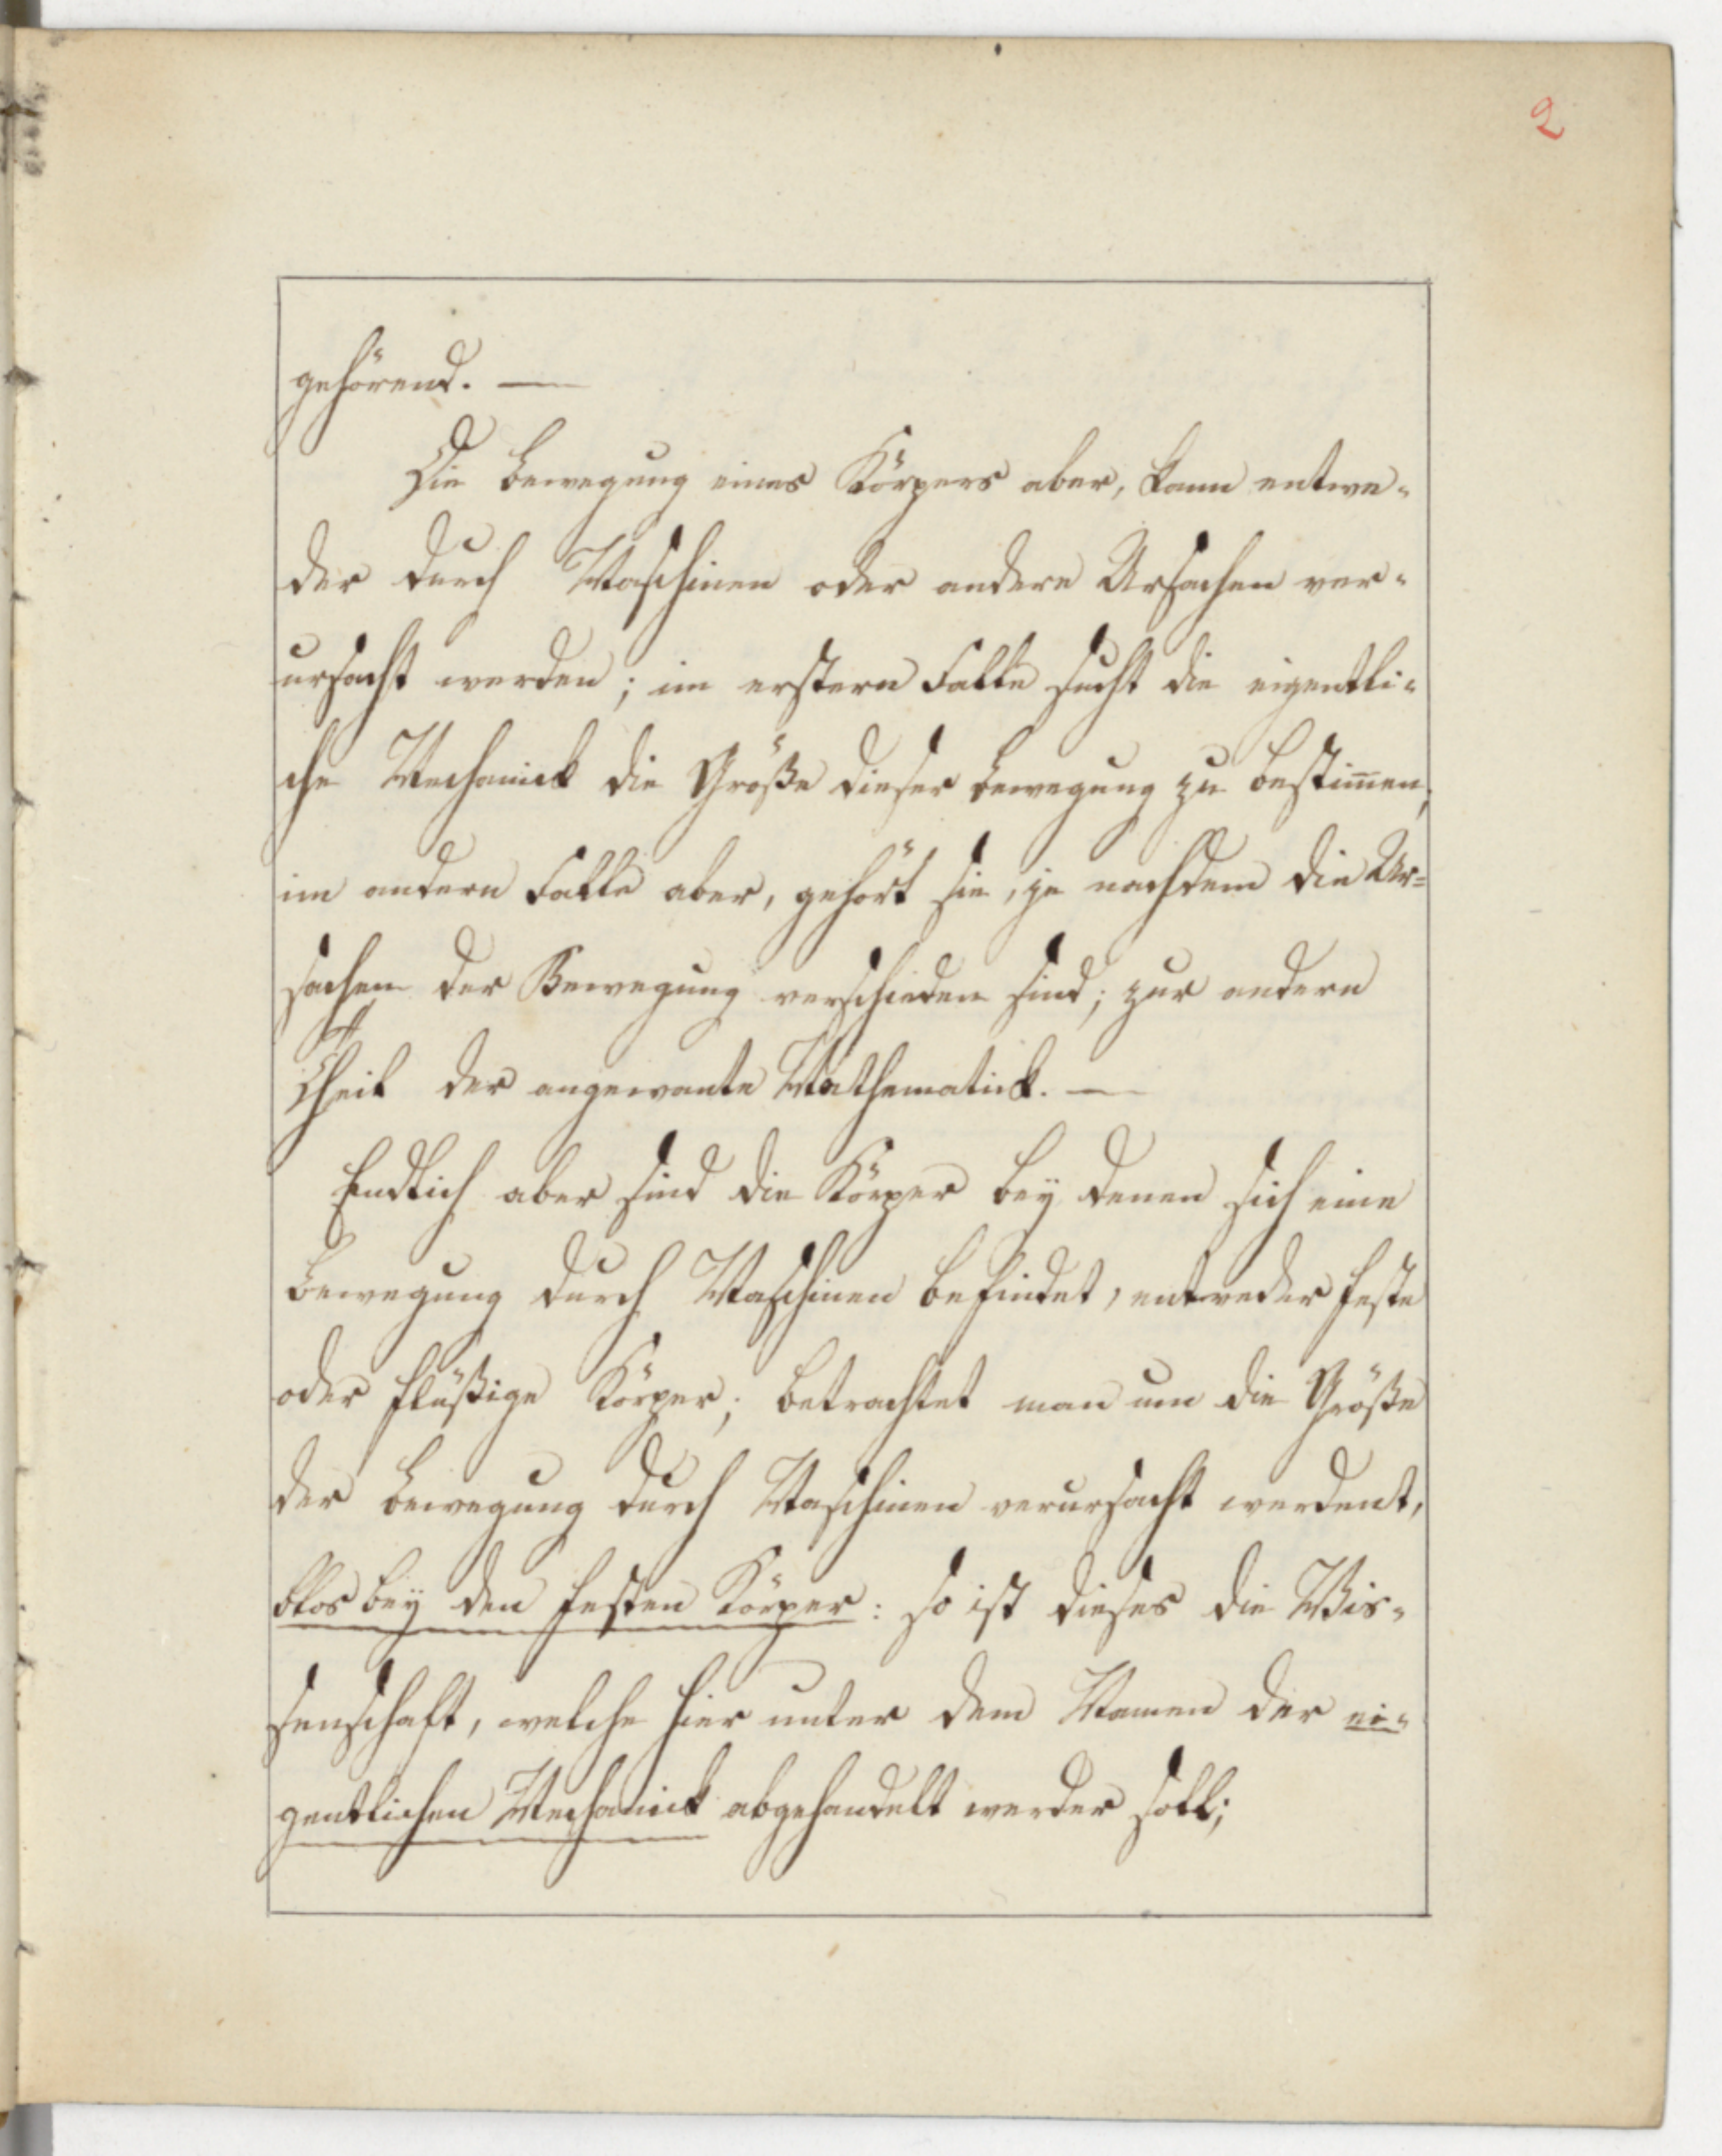 2
gehörend. —
Die Bewegung eines Körpers aber, kann entwe-
der durch Maschinen oder andere Ursachen ver-
ursacht werden; im erstern Falle sucht die eigentli-
che Mechanick die Größe dieser Bewegung zu bestim̅en;
im andern Falle aber, gehört sie, je nachdem die Ur=
sachen der Bewegung verschieden sind; zur andern
Theil der angewante Mathematick. —
Endlich aber sind die Körper bey denen sich eine
Bewegung durch Maschinen befindet, entweder feste
oder flüßige Körper; betrachtet man um die Größe
der Bewegung durch Maschinen verursacht werdent,
blos bey den festen Körper: so ist dieses die Wis-
senschaft, welche hier unter dem Namen der ei-
gentlichen Mechanick abgehandelt werder soll;